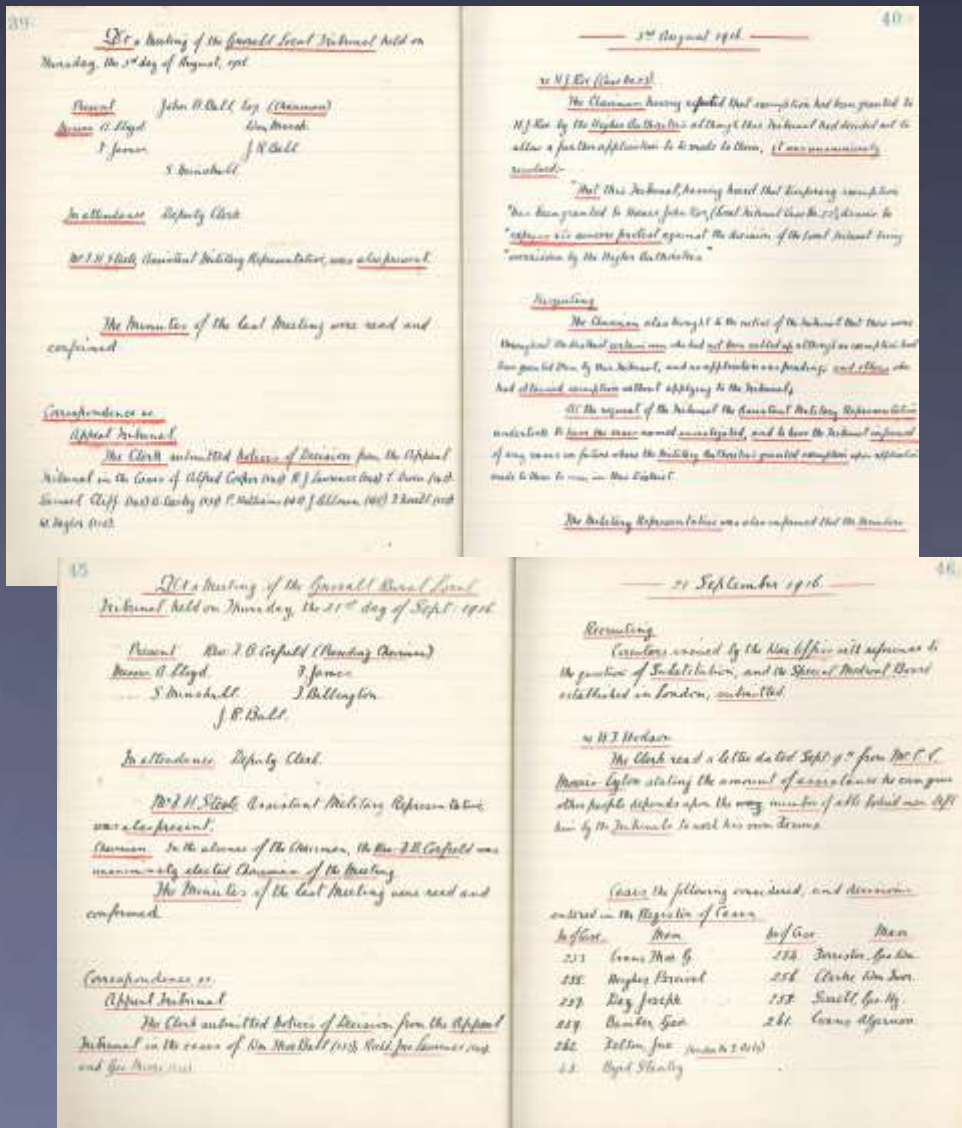 39
At a Meeting of the Local Tribunal held on
Thursday, the 3rd day of August, 1916
Present John B. Ball Esq (Chairman)
Messrs A. Lloyd Wm Marsh
T. James J R Ball
S Minshall
In attendance Deputy Clerk
Mr J. H. Steele Assistant Military Representative, was also present.
The Minutes of the last Meeting were read and
confirmed
Correspondence re.
Appeal Tribunal
The Clerk submitted Notices of Decision from the Appeal
Tribunal in the Cases of Alfred Cooper R J Lawrence T. Owen
Samuel Cliff P. Williams J Allman
W. Taylor
40
3rd August 1916
re H. J. Roe
The Chairman having reported that exemption had been granted to
H. J. Roe by the Higher Authorities although this Tribunal had decided not to
allow a further application to be made to them, it was unanimously
resolved:-
"That this Tribunal, having heard that temporary exemption
"has been granted to Horace John Roe, (Local Tribunal Case No. ), desires to
"express its sincere protest against the decision of the Local Tribunal being
"overridden by the Higher Authorities"
Recruiting
The Chairman also brought to the notice of the Tribunal that there were
throughout the district certain men who had not been called up although no exemption had
been granted them by this Tribunal, and no application was pending, and others who
had obtained exemption without applying to the Tribunal,
At the request of the Tribunal the Assistant Military Representative
undertook to have the cases named investigated, and to have the Tribunal informed
of any cases in future where the Military Authorities granted exemption upon application
made to them by men in this District.
The Military Representative was also informed that the Members
45
At a Meeting of the Rural Local
Tribunal held on Thursday, the 21st day of Sept. 1916
Present Rev. F. B. Corfield (Presiding Chairman)
Messrs A. Lloyd T. James
S. Minshall J. Billington
J. R. Ball.
In attendance Deputy Clerk.
Mr J. H. Steele Assistant Military Representative
was also present.
Chairman. In the absence of the Chairman, the Rev. F. B. Corfield was
unanimously elected Chairman of the Meeting
The Minutes of the last Meeting were read and
confirmed
Correspondence re.
Appeal Tribunal
The Clerk submitted Notices of Decision from the Appeal
Tribunal in the cases of Wm Thos Ball Richd Jno Lawrence
and Geo
46
21 September 1916.
Recruiting
Circulars issued by the War Office with reference to
the question of Substitution, and the Special Medical Board
established in London, submitted.
re H. J. Hodson
The Clerk read a letter dated Sept 9th from Mr
Morris Eyton stating the amount of assistance he can give
other people depends upon the number of able bodied men left
him by the Tribunals to work his own farms
Cases the following considered, and decisions
entered in the Register of Cases
No of Case. Man No of Case. Man
Evans Thos G. 254 Forrester, Geo Wm
255 Hughes Percival 256 Clarke Wm
257 Day Joseph 258 Geo Hy
259 Bunter Geo 261 Evans Algernon
262 Felton Jno
Byrd Stanley